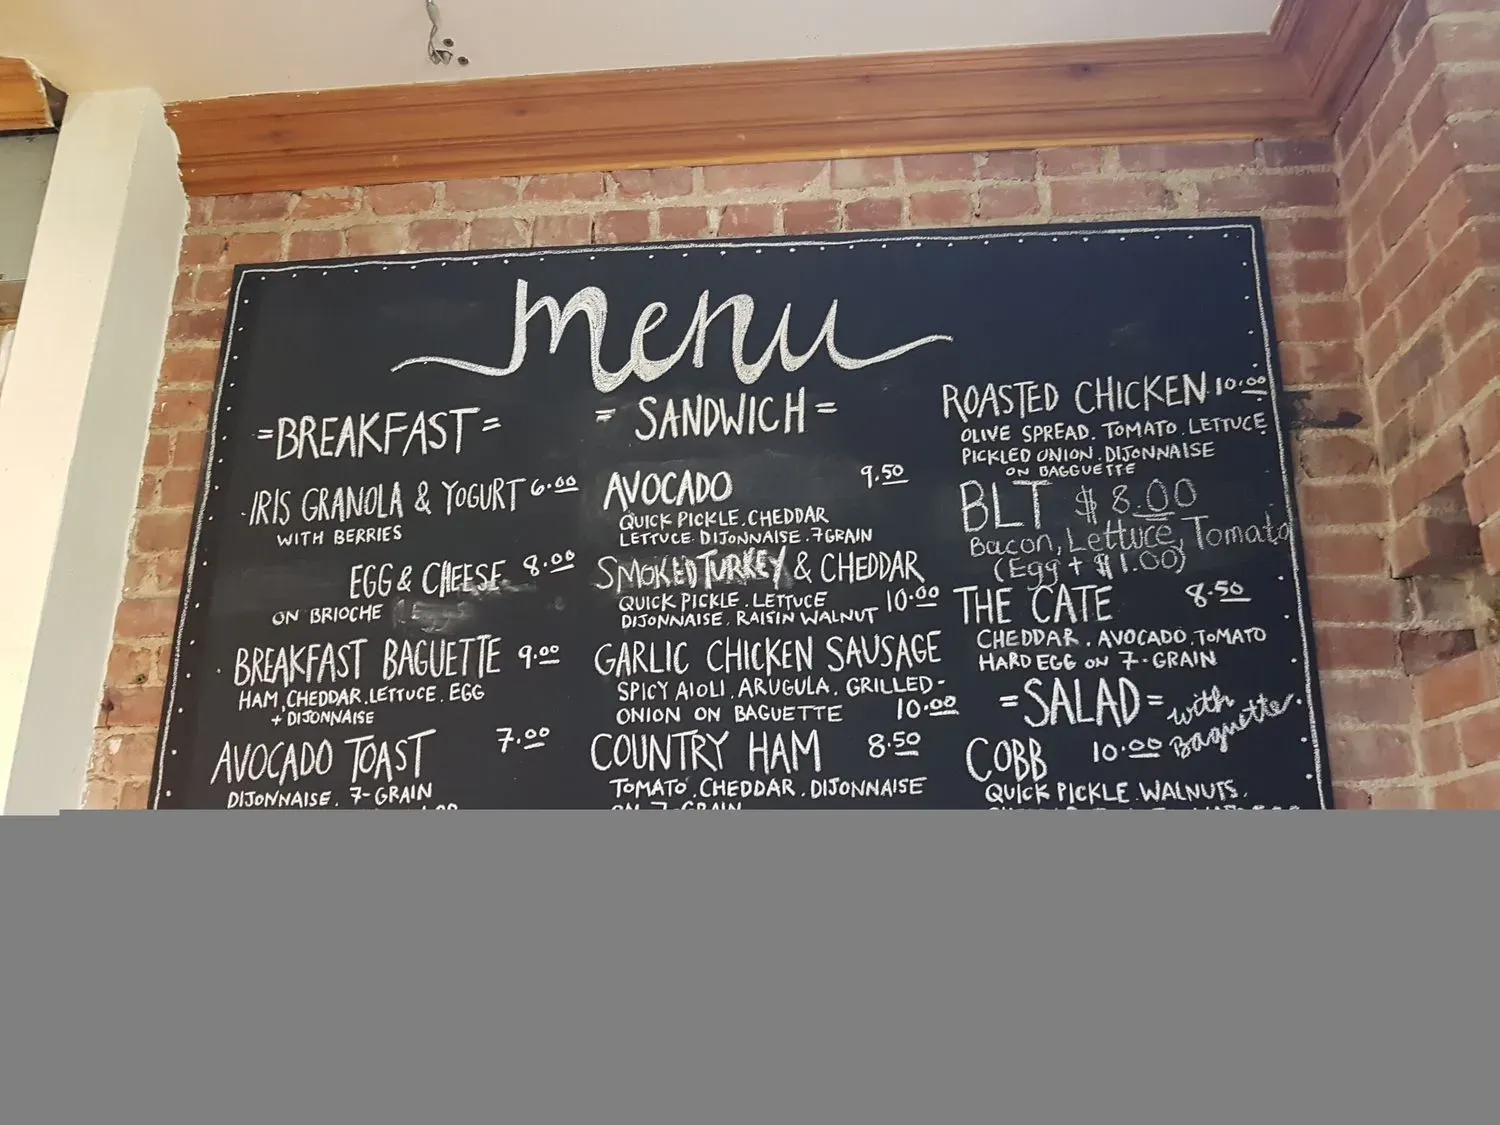 menu
=BREAKFAST=
IRIS GRANOLA & YOGURT 6.00
WITH BERRIES
EGG & CHEESE 8.00
ON BRIOCHE
BREAKFAST BAGUETTE 9.00
HAM, CHEDDAR, LETTUCE. EGG
+ DIJONNAISE
AVOCADO TOAST 7.00
DIJONNAISE. 7-GRAIN
= SANDWICH =
AVOCADO 9.50
QUICK PICKLE. CHEDDAR
LETTUCE. DIJONNAISE. 7GRAIN
SMOKED TURKEY & CHEDDAR
QUICK PICKLE. LETTUCE 10.00
DIJONNAISE. RAISIN WALNUT
GARLIC CHICKEN SAUSAGE
SPICY AIOLI. ARUGULA. GRILLED-
ONION ON BAGUETTE 10.00
COUNTRY HAM 8.50
TOMATO. CHEDDAR. DIJONNAISE
ON 7-GRAIN
ROASTED CHICKEN 10.00
OLIVE SPREAD. TOMATO. LETTUCE
PICKLED ONION. DIJONNAISE
ON BAGGUETTE
BLT $ 8.00
Bacon, Lettuce, Tomato
(Egg + $1.00)
THE CATE 8.50
CHEDDAR. AVOCADO. TOMATO
HARD EGG ON 7-GRAIN
=SALAD= with
Baguette.
COBB 10.00
QUICK PICKLE. WALNUTS.